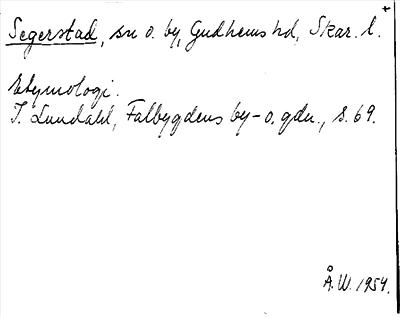 Segerstad, sn o. by, Gudhems hd, Skar. l.
Etymologi.
I. Lundahl, Falbygdens by- o. gdn., s. 69.
Å. W. 1954.